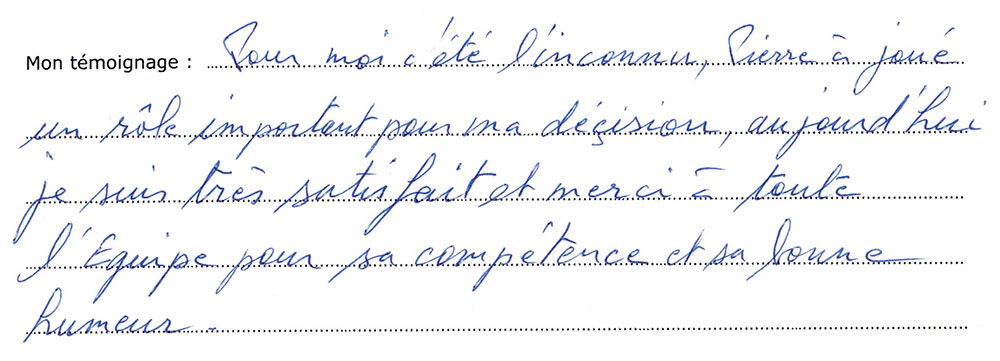 Mon témoignage : Pour moi c'été l'inconnu, Pierre à joué
un rôle important pour ma déçision, aujourd'hui
je suis très satisfait et merci à toute
l'Equipe pour sa compétence et sa bonne
humeur.